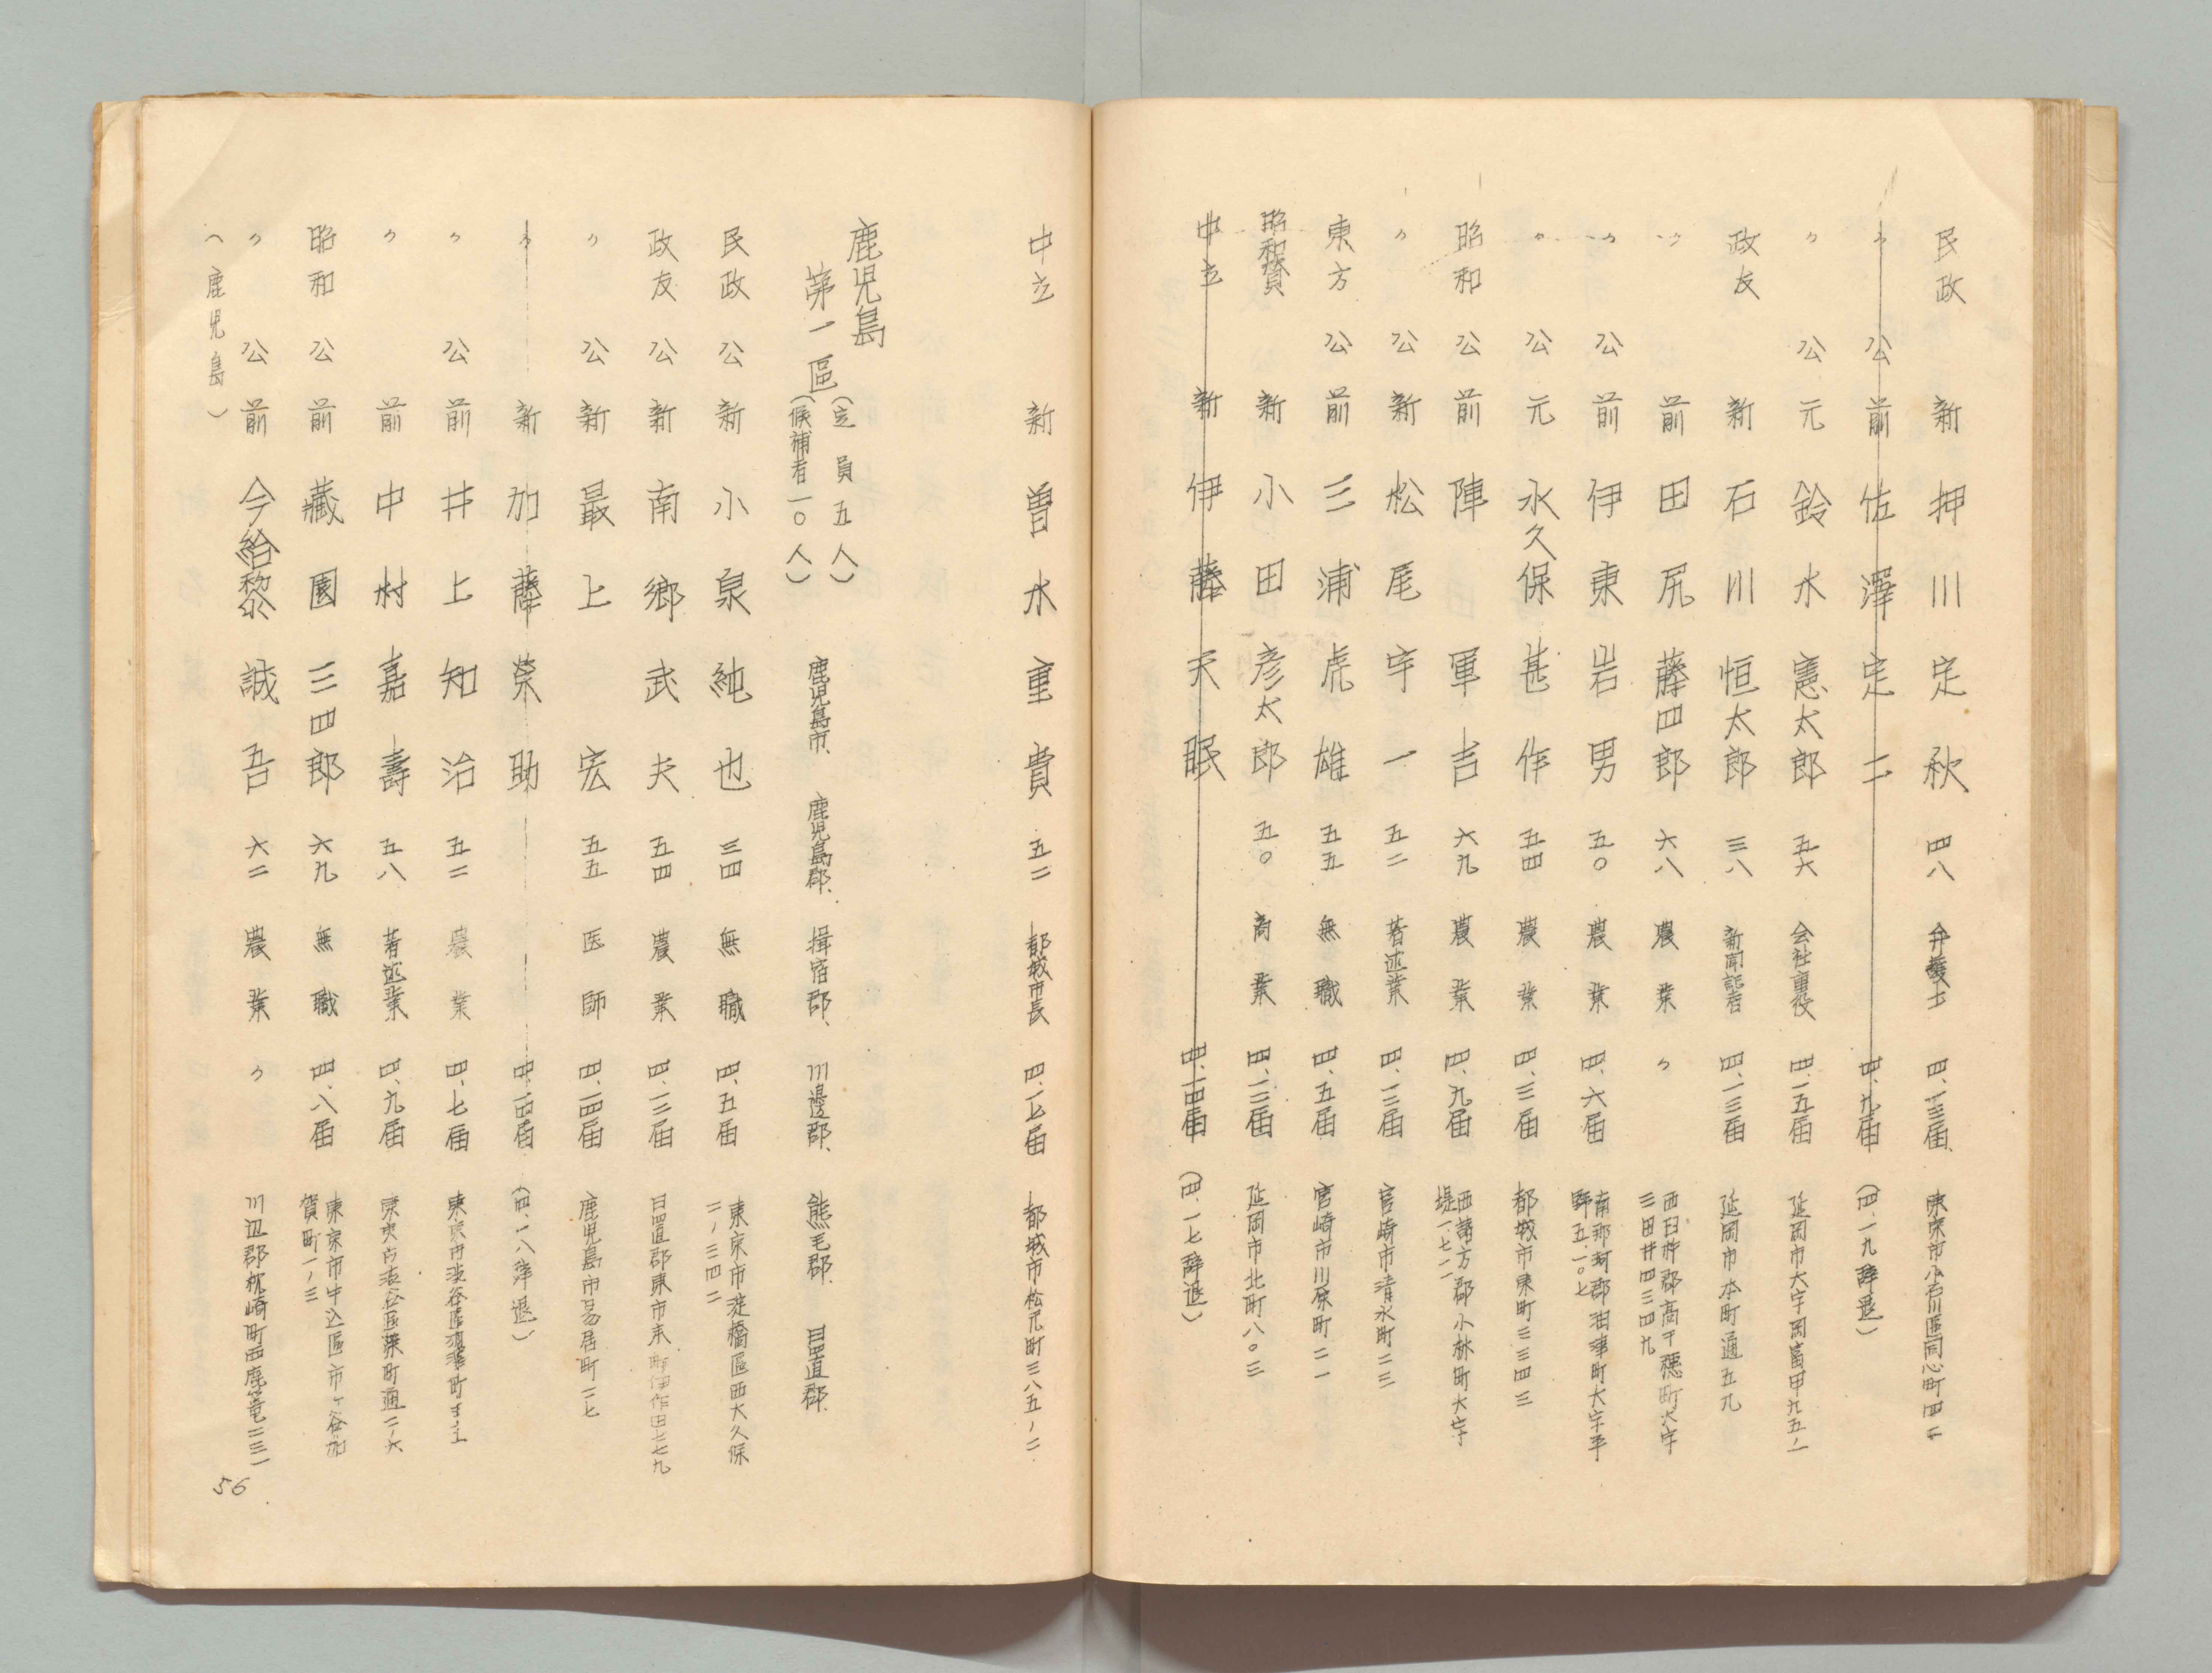 民政 新 押川定秋 四八 弁護士 四、一三届 東京市小石川區同心町四二
〃 公 前 佐澤定二 四、九届 (四、一九辞退)
〃 公 元 鈴木憲太郎 五六 会社重役 四、一五届 延岡市大字岡富甲九五ノ一
政友 新 石川恒太郎 三八 新聞記者 四、一三届 延岡市本町通五九
〃 前 田尻藤四郎 六八 農業 〃 西臼杵郡高千穂町大字
三田井四三四九
〃 公 前 伊東岩男 五〇 農業 四、六届 南那珂郡油津町大字平
野五、一〇七
〃 公 元 水久保甚作 五四 農業 四、三届 都城市東町三三四三
昭和 公 前 陣軍吉 六九 農業 四、九届 西諸方郡小林町大字
堤一、七二一
〃 公 新 松尾宇一 五二 著述業 四、一三届 宮崎市清水町二三
東方 公 前 三浦虎雄 五五 無職 四、五届 宮崎市川原町二一
昭和賛 新 小田彦太郎 五〇 商業 四、一三届 延岡市北町八〇三
中立 新 伊藤天眠 四、一四届 (四、一七辞退)
中立 新 曽木重貴 五二 都城市長 四、一七届 都城市松元町三八五ノ二
鹿児島
第一區 (定員五人)
(候補者一〇人)
鹿児島市、鹿児島郡、揖宿郡、川邊郡、熊毛郡、日置郡、
民政 公 新 小泉純也 三四 無職 四、五届 東京市淀橋區西大久保
二ノ三四二
政友 公 新 南郷武夫 五四 農業 四、一三届 日置郡東市来町伊作田七七九
〃 公 新 最上宏 五五 医師 四、一四届 鹿児島市易居町二七
〃 新 加藤榮助 四、一四届 (四、一八辞退)
〃 公 前 井上知治 五二 農業 四、七届 東京市渋谷區
〃 前 中村嘉壽 五八 著述業 四、九届 東京市渋谷區榮町通二ノ六
昭和 公 前 藏園三四郎 六九 無職 四、八届 東京市牛込區市ヶ谷加
賀町一ノ三
〃 公 前 今給黎誠吾 六二 農業 〃 川辺郡枕崎町西鹿篭二三一
(鹿児島)
56